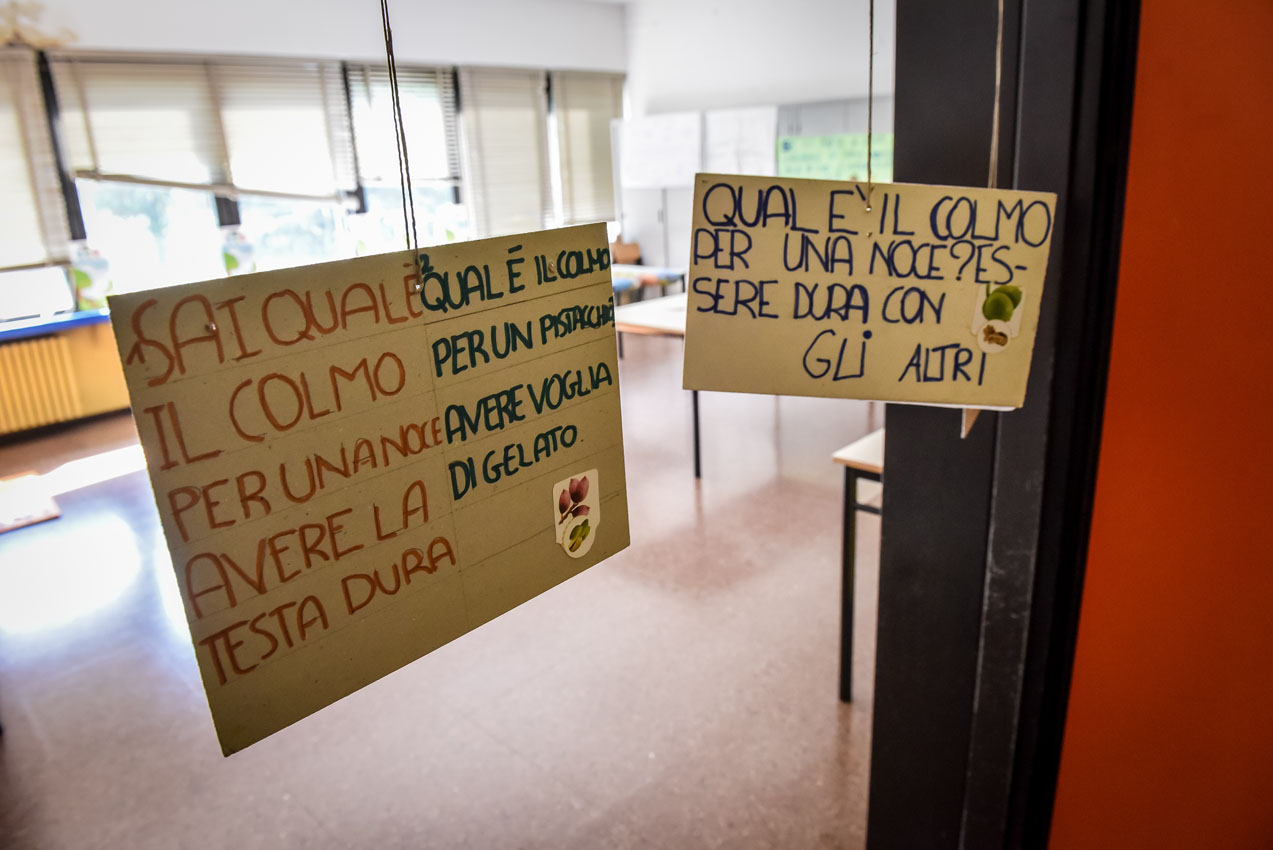 1 SAI QUAL È
IL COLMO
PER UNA NOCE
AVERE LA
TESTA DURA
2 QUAL É IL COLMO
PER UN PISTACCHIO
AVERE VOGLIA
DI GELATO.
QUAL E' IL COLMO
PER UNA NOCE? ES-
SERE DURA CON
GLI ALTRI